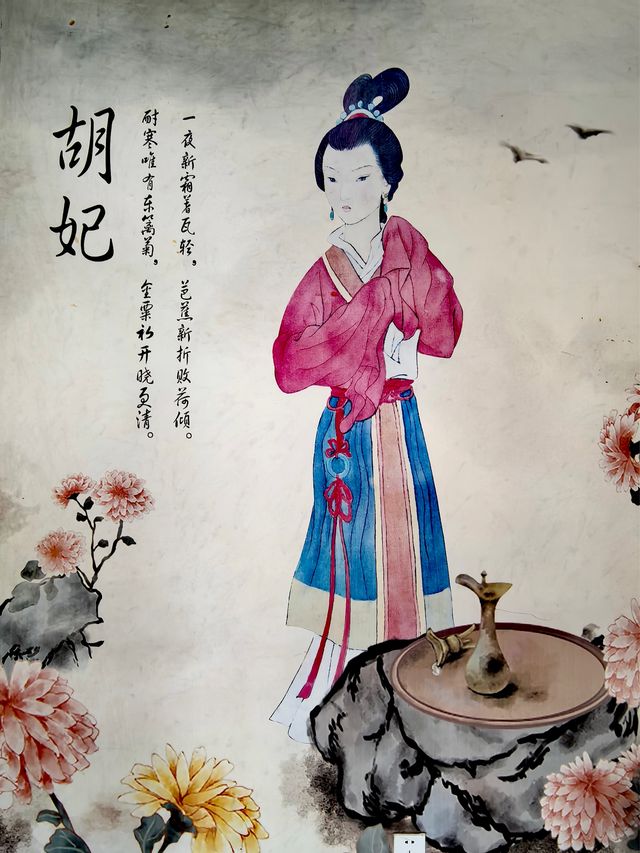 胡妃
一夜新霜着瓦轻，芭蕉新折败荷倾。
耐寒唯有东篱菊，金粟初开晓更清。